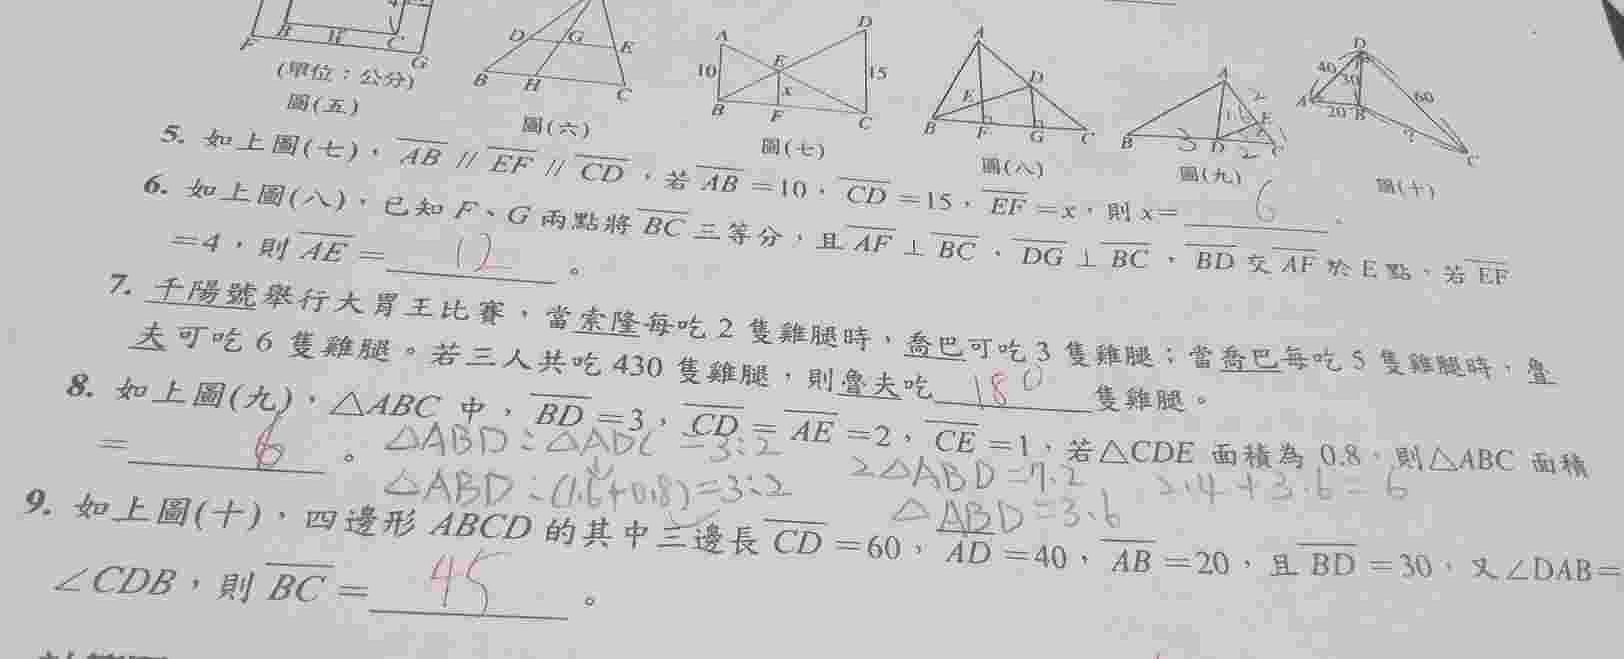 F B H C G
(單位：公分)
圖(五)
D G E B H C
圖(六)
A D 10 E x 15 B F C
圖(七)
A D E B F G C
圖(八)
A 2 E 1 B 3 D 2 C
圖(九)
D 40 30 60 A 20 B ? C
圖(十)
5. 如上圖(七)，AB // EF // CD，若 AB = 10，CD = 15，EF = x，則 x = 6 。
6. 如上圖(八)，已知 F、G 兩點將 BC 三等分，且 AF ⊥ BC，DG ⊥ BC，BD 交 AF 於 E 點，若 EF
= 4，則 AE = 12 。
7. 千陽號舉行大胃王比賽，當索隆每吃 2 隻雞腿時，喬巴可吃 3 隻雞腿；當喬巴每吃 5 隻雞腿時，魯
夫可吃 6 隻雞腿。若三人共吃 430 隻雞腿，則魯夫吃 180 隻雞腿。
8. 如上圖(九)，△ABC 中，BD = 3，CD = AE = 2，CE = 1，若△CDE 面積為 0.8，則△ABC 面積
= 6 。
△ABD : △ADC = 3:2
△ABD : (1.6+0.8) = 3:2
2△ABD = 7.2
△ABD = 3.6
2.4 + 3.6 = 6
9. 如上圖(十)，四邊形 ABCD 的其中三邊長 CD = 60，AD = 40，AB = 20，且 BD = 30，又∠DAB =
∠CDB，則 BC = 45 。